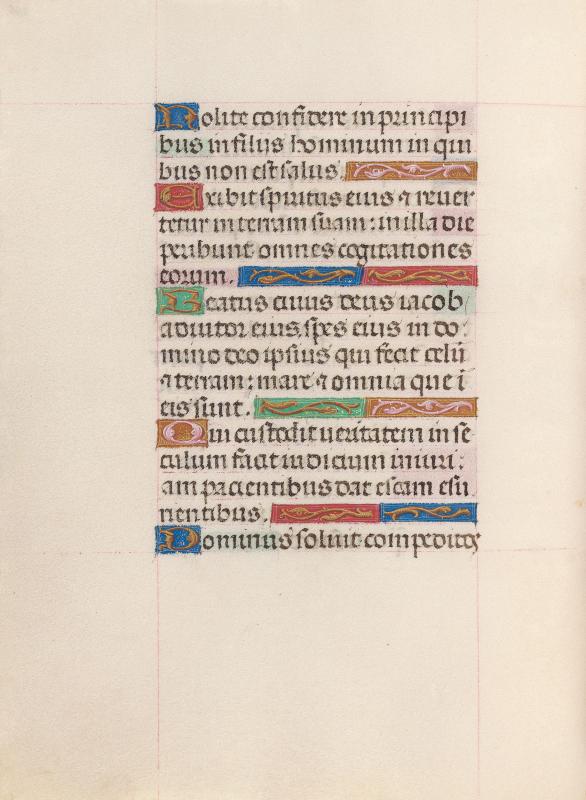 Nolite confidere in principi
bus in filijs hominum in qui
bus non est salus.
Exibit spiritus eius ⁊ reuer
tetur in terram suam: in illa die
peribunt omnes cogitationes
eorum.
Beatus cuius deus iacob
adiutor eius, spes eius in do:
mino deo ipsius qui fecit celū
⁊ terram: mare ⁊ omnia que ī
eis sunt.
Qui custodit ueritatem in se
culum facit iudicium iniuri:
am pacientibus dat escam esu
rientibus.
Dominus soluit compeditos